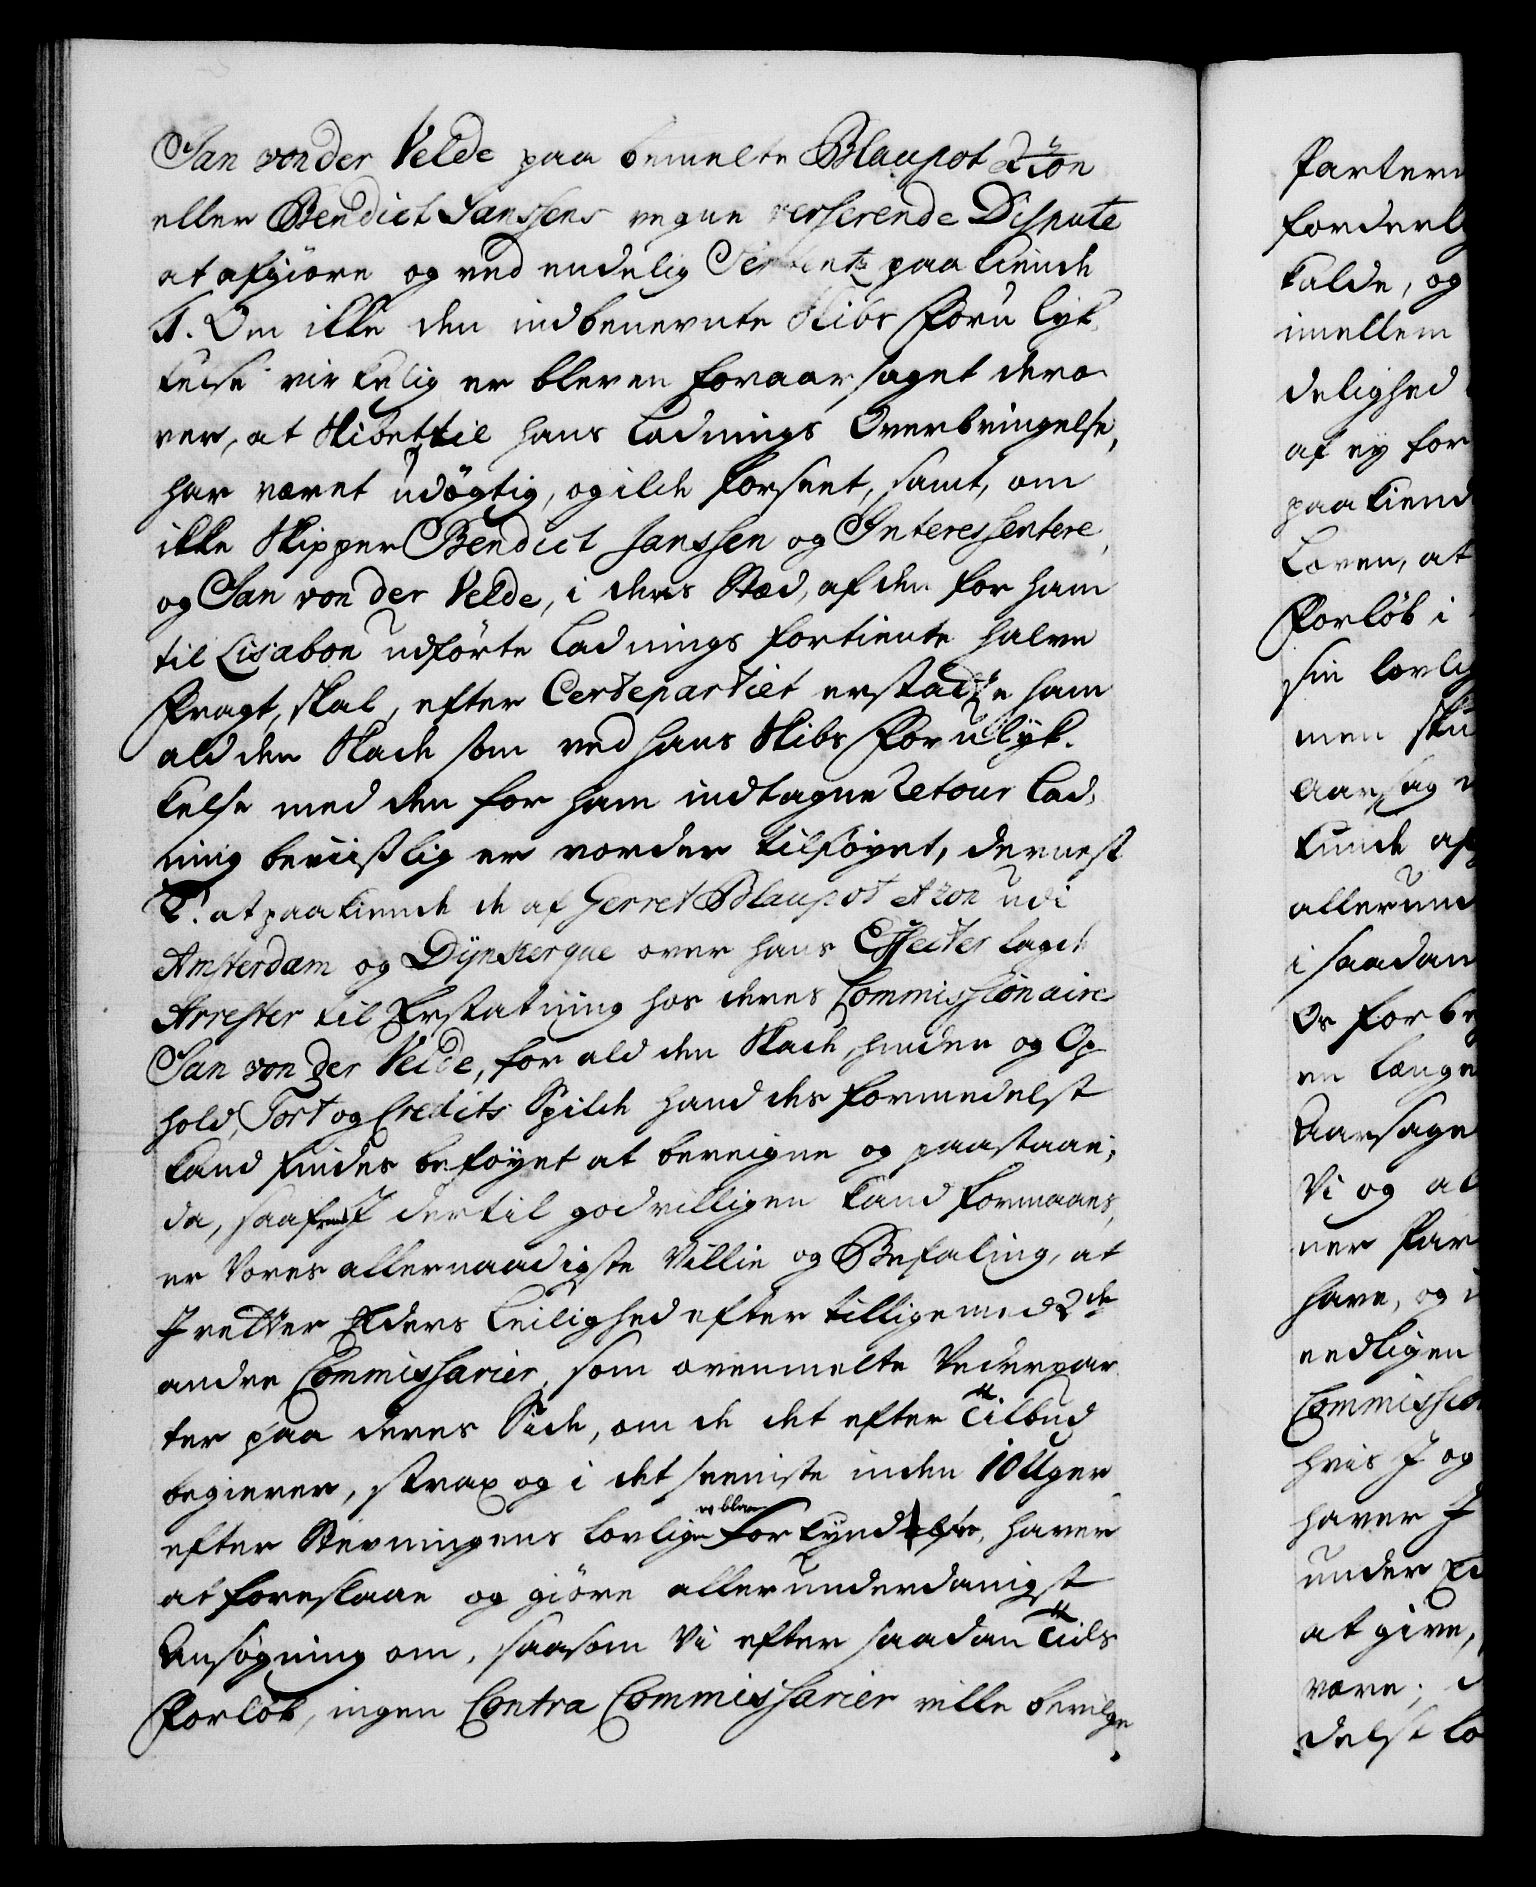 Jan von der Velde paa bemelte Blaupot Azon
eller Bendict Janssens vegne verserende Dispute
at afgiøre og ved endelig Sententz paakiende
1. Om ikke den indbenevnte Skibs Foru lyk
kelse virkelig er bleven foraarsaget dero
ver, at Skibet til hans Ladnings Overbringelse,
har været udögtig, og ilde forseet, samt, om
ikke Skipper Bendict Janssen og Interessentere,
og Jan von der Velde, i deres Stæd, af den for ham
til Lisabon udførte Ladnings fortiente halve
Fragt, skal, efter Certepartiet erstadte ham
ald den Skade som ved hans Skibs Forulyk-
kelse med den for ham indtagne Retour Lad-
ning beviißlig er vorden tilføyet, dernest
2. at paakiende de af Gerret Blaupot Azon udi
Amsterdam og Dynkerque over hans Effecter lagde
Arrester til Erstatning hos deres Commissionaire
Jan von der Velde, for ald den Skade, hinder og Op
hold, Tort og Credits Spilde hand des formedelst
kand findes beføyet at bereigne og paastaae;
da, saafremt I dertil godvilligen kand formaaes,
er Vores allernaadigste Villie og Befaling, at
I retter Eders Leilighed efter tillige med 2de
andre Commissarier, som ovenmelte Vederpar
ter paa deres Side, om de det efter Tilbud
begierer, strax og i det seeniste inden 10 Uger
efter Stevningens lovlige forkyndelse, haver
at foreslaae og giøre allerunderdanigst
Ansøgning om, saasom Vi efter saadan Tids
Forløb, ingen Contra Commissarier ville bevilge
Partern
forderl
kalde, og
imellem
delighed
af ey for
paakiend
Loven, at
Forløb i
sin lovli
men sku
Aarsag
kunde af
allerund
i saadan
Os forbe
en længe
Aarsage
Vi og al
ner Par
have, og
endligen
Commission
hvis I og
haver I
under Ed
at give,
være;
delst lo